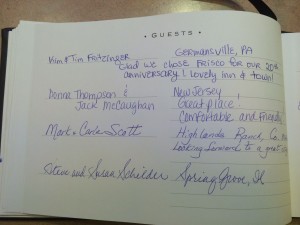 · GUESTS ·
Kim & Tim GERMANSVILLE, PA
Glad we chose Frisco for our 20th
anniversary! Lovely inn & town!
Donna Thompson & New Jersey
Jack McCaughan Great place!
Comfortable and Friendly
Mark & Carla Scott Highlands Ranch, Co.
Looking forward to a great
Steve and Susan Schilder Spring Grove, IL